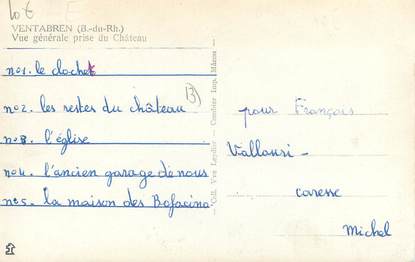 10 €
VENTABREN (B.-du-Rh.)
Vue générale prise du Château
n°1. le clochet
n°2. les restes du château
n°3. l'église
n°4. l'ancien garage de nous
n°5. la maison des Bofacino
13
"Coll. Vve Laydier" - Combier Imp. Mâcon
pour François
Vallousi -
caresse
Michel